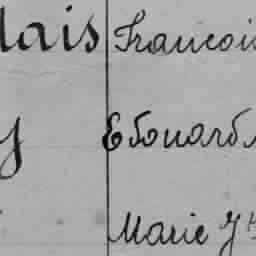 lais Francois
y Edouard
Marie J